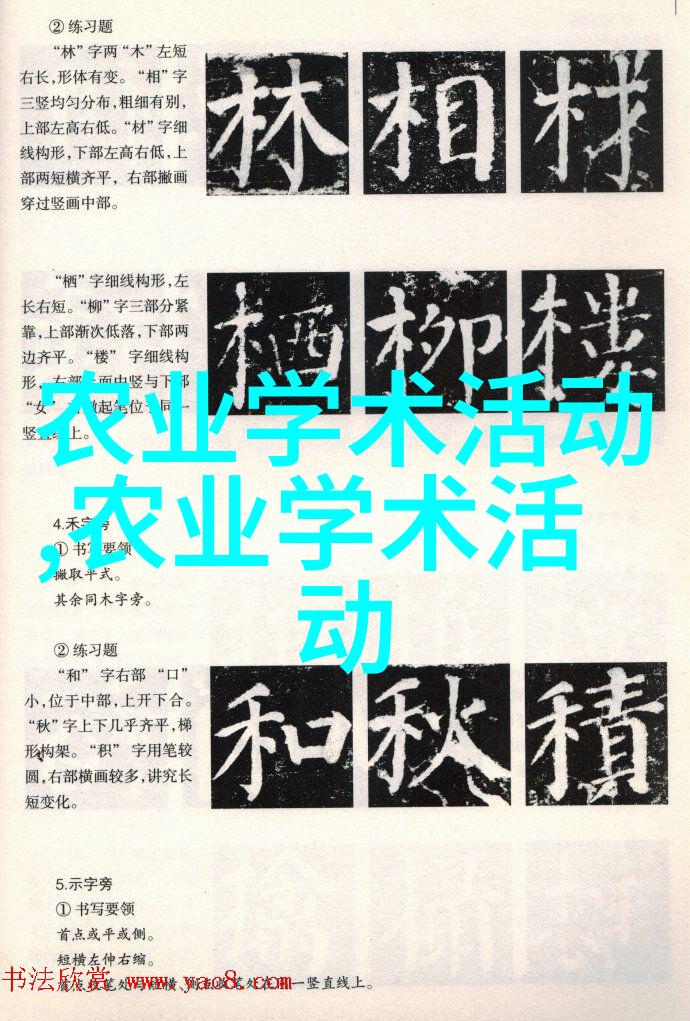 ② 练习题
“林”字两“木”左短
右长,形体有变。“相”字
三竖均匀分布,粗细有别,
上部左高右低。“材”字细
线构形,下部左高右低,上
部两短横齐平,右部撇画
穿过竖画中部。
林 相 材
“栖”字细线构形,左
长右短。“柳”字三部分紧
靠,上部渐次低落,下部两
边齐平。“楼”字细线构
栖 柳 楼
农业学术活动
,农业学术活
动
4.禾字旁
① 书写要领
撇取平式。
其余同木字旁。
② 练习题
“和”字右部“口”
小,位于中部,上开下合。
“秋”字上下几乎齐平,梯
形构架。“积”字用笔较
圆,右部横画较多,讲究长
短变化。
和 秋 積
5.示字旁
① 书写要领
首点或平或侧。
短横左伸右缩。
书法欣赏 www.yac8.com
一竖直线上。